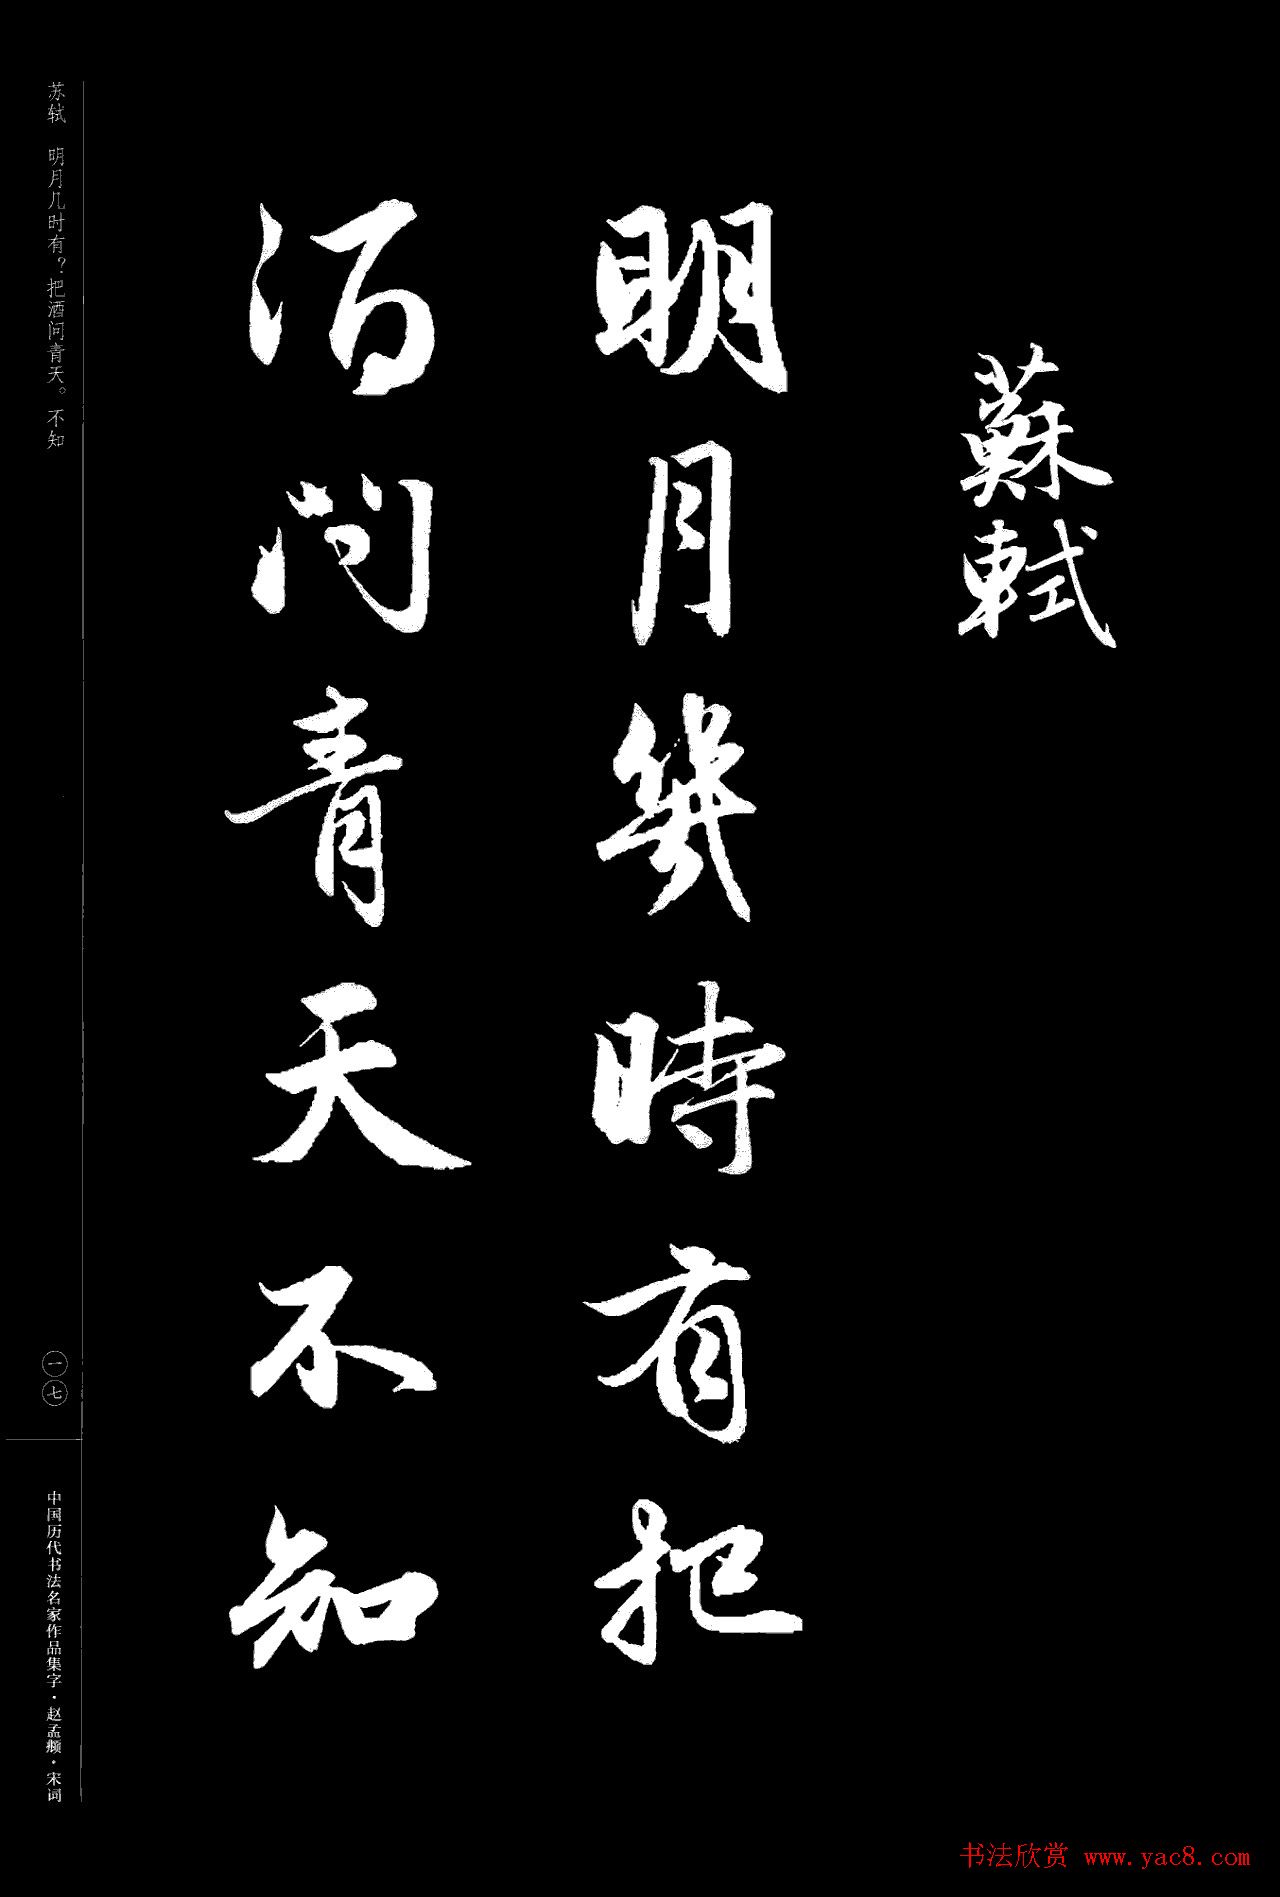 蘇軾
明月幾時有把
酒問青天不知
苏轼 明月几时有？把酒问青天。不知
一七
中国历代书法名家作品集字·赵孟頫·宋词
书法欣赏 www.yac8.com